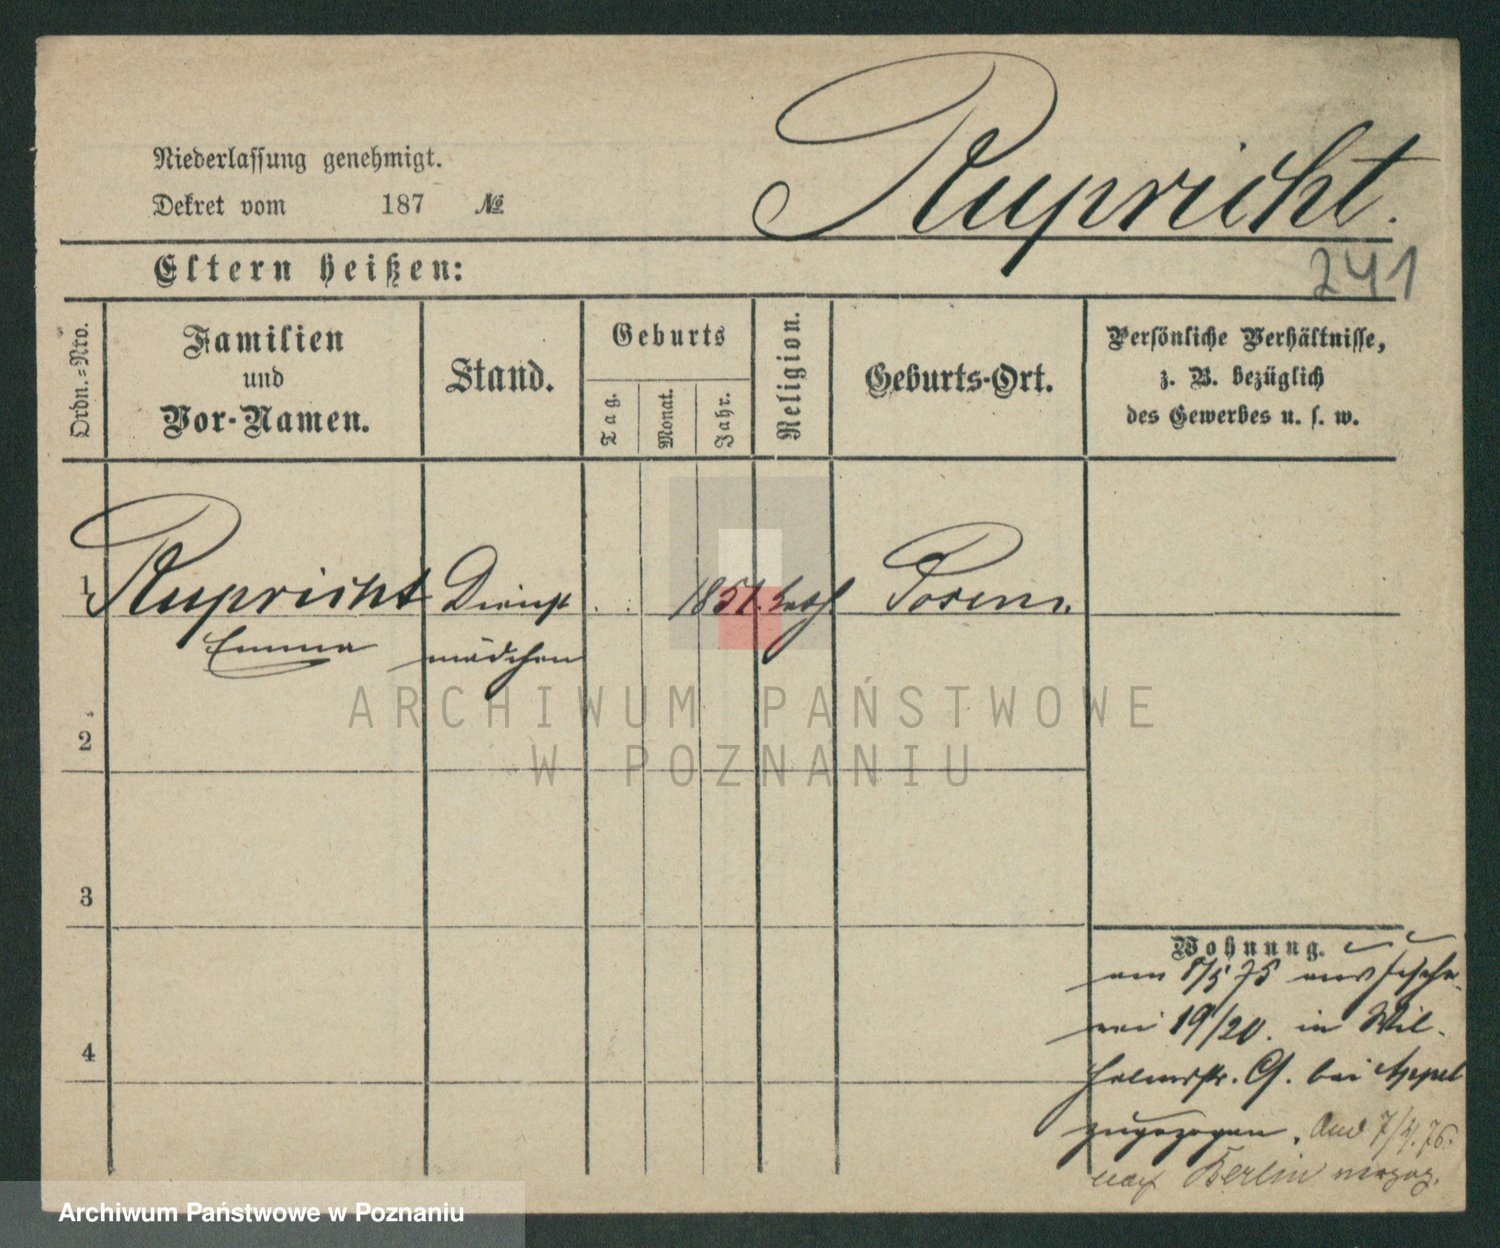 Rupricht.
Niederlassung genehmigt.
Dekret vom 187 №
241
Eltern heißen:
Ordn.=Nro.
Familien
und
Vor-Namen.
Stand.
Geburts
Tag.
Monat.
Jahr.
Religion.
Geburts-Ort.
Persönliche Verhältnisse,
z. B. bezüglich
des Gewerbes u. s. w.
1 Rupricht Dienst 1851. kath. Posen.
Emma mädchen
ARCHIWUM PAŃSTWOWE
2
W POZNANIU
3
Wohnung.
am /5 75 aus Fische
rei 19/20. in Wil-
4
helmstr. 9. bei Appel
zugezogen. 7/4. 76.
nach Berlin verzog.
Archiwum Państwowe w Poznaniu